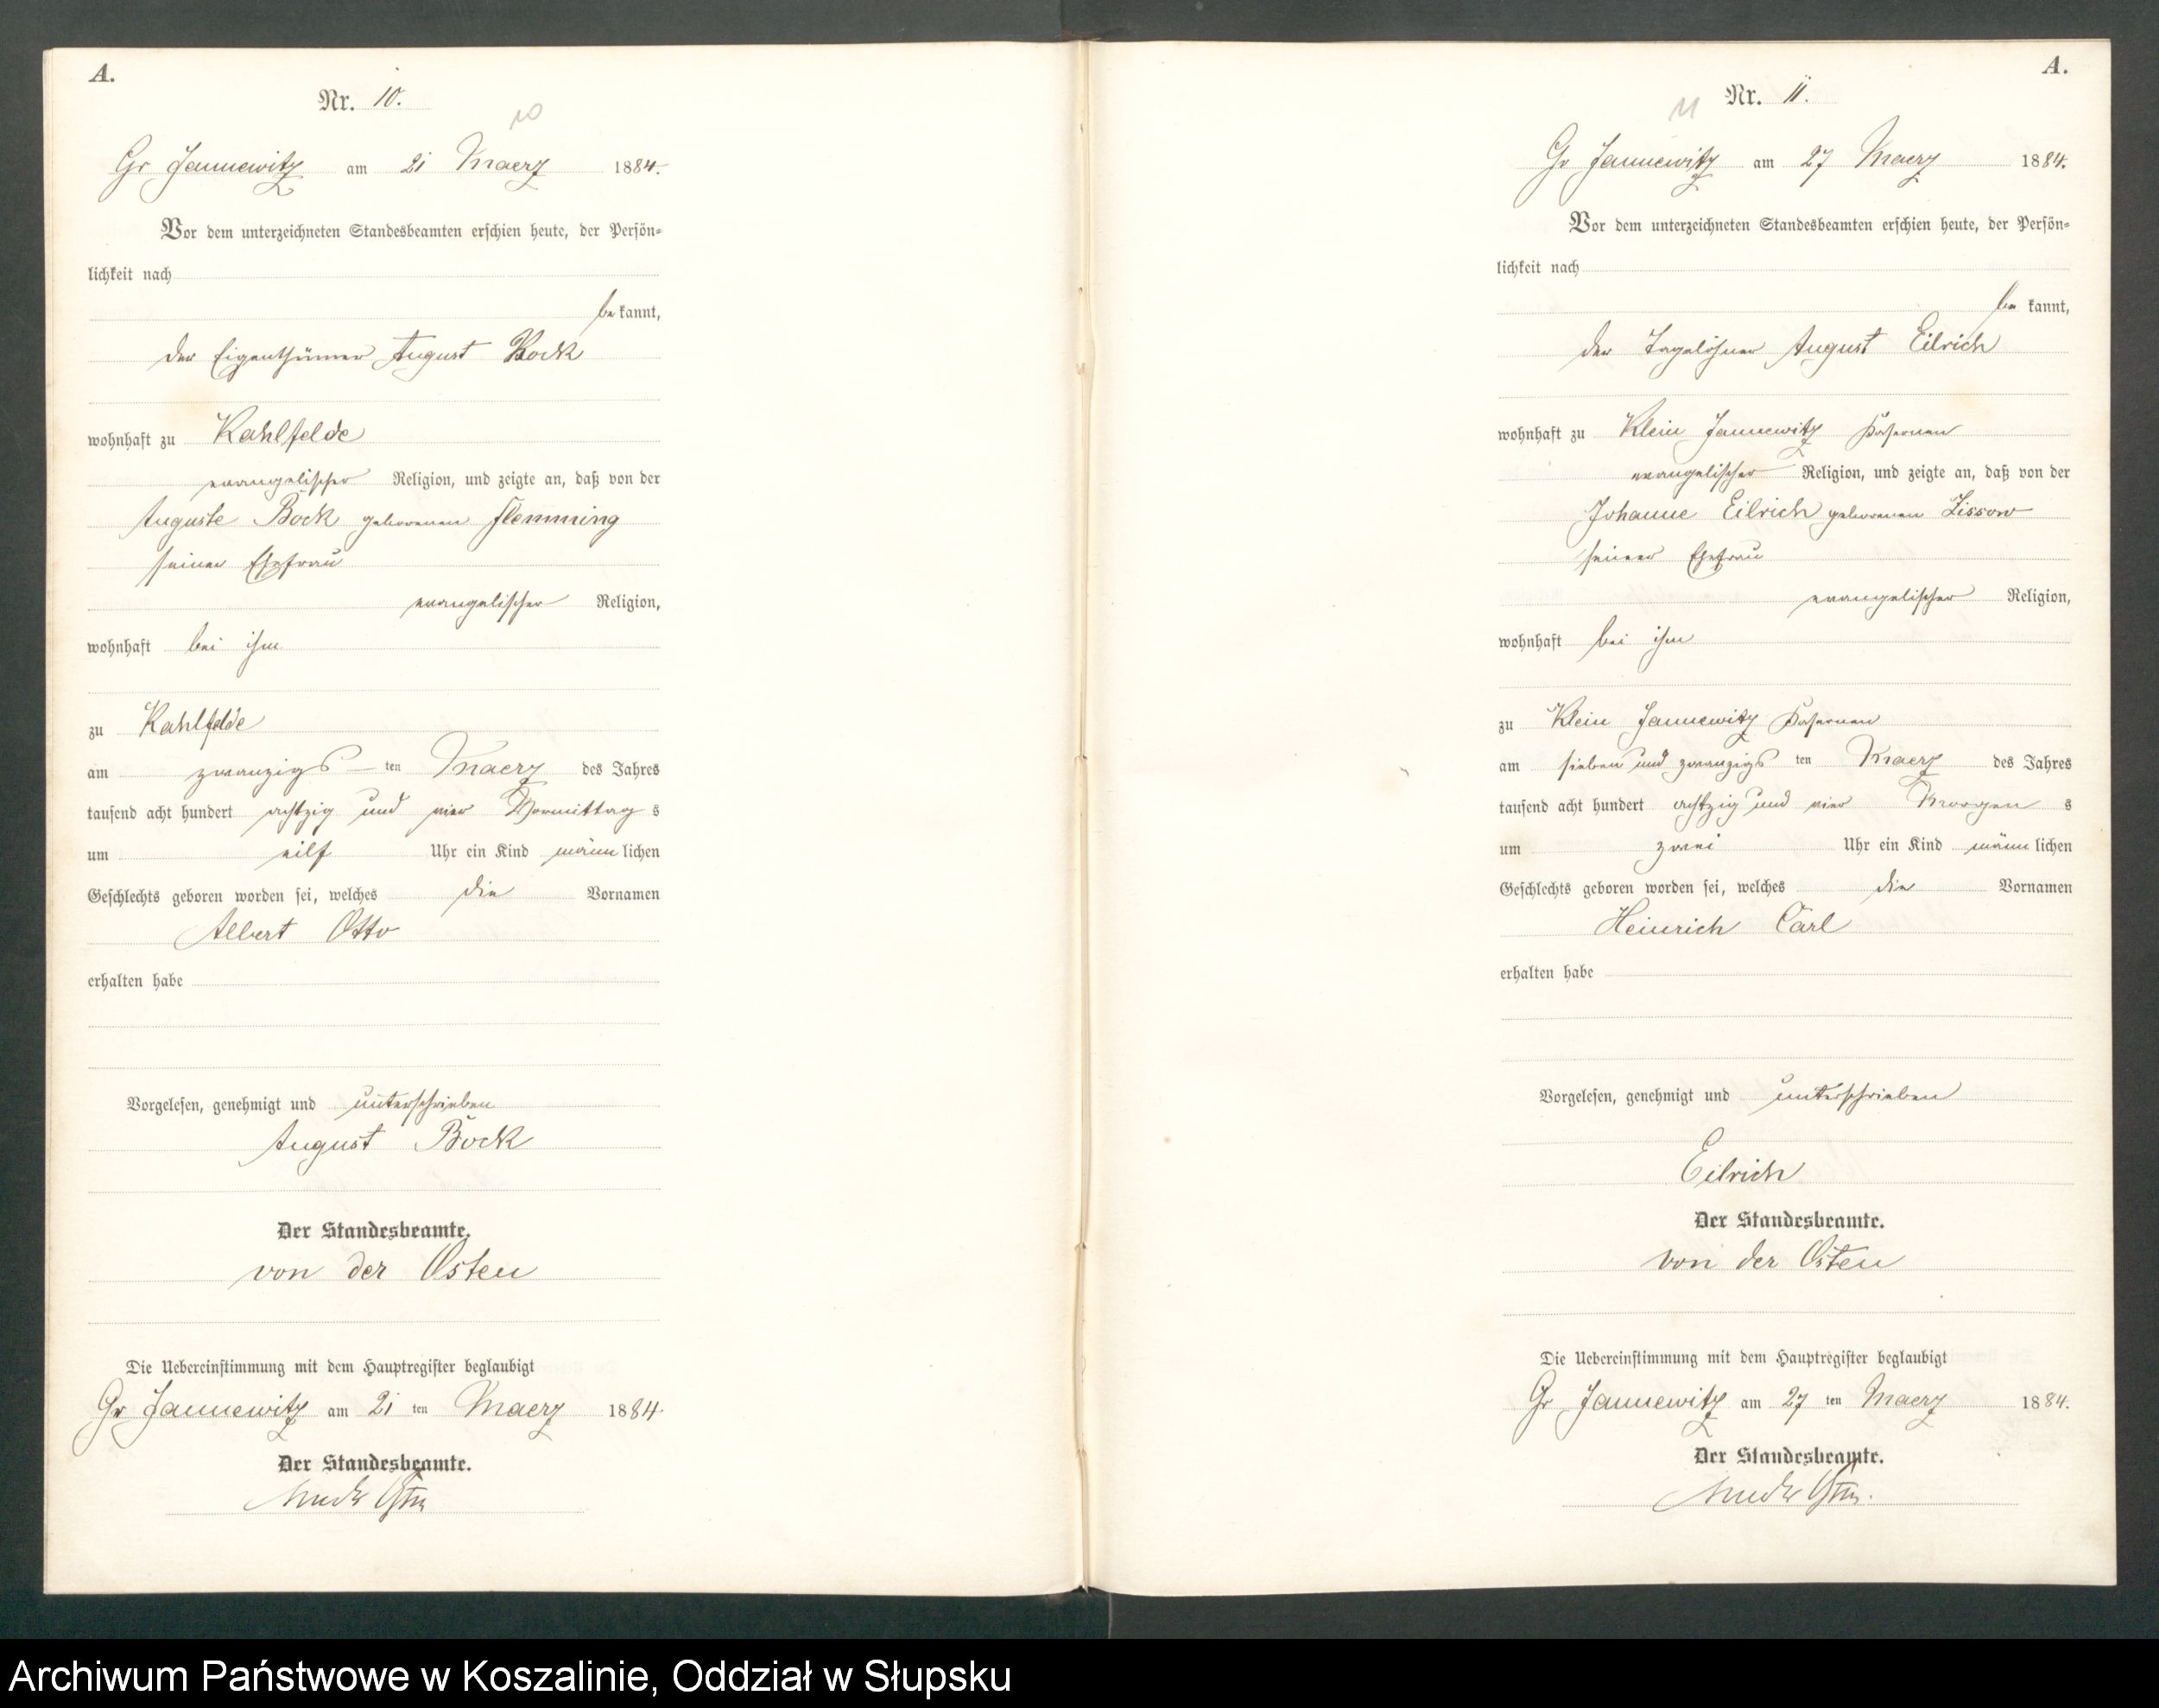 A.
Nr. 10.
10
Gr Jannewitz am 21 Maerz 1884.
Vor dem unterzeichneten Standesbeamten erschien heute, der Persön-
lichkeit nach
be kannt,
der Eigenthümer August Bock
wohnhaft zu Kahlfelde
evangelischer Religion, und zeigte an, daß von der
Auguste Bock geborenen Flemming
seiner Ehefrau
evangelischer Religion,
wohnhaft bei ihm
zu Kahlfelde
am zwanzigs ten Maerz des Jahres
tausend acht hundert achtzig und vier Vormittag s
um eilf Uhr ein Kind männ lichen
Geschlechts geboren worden sei, welches die Vornamen
Albert Otto
erhalten habe
Vorgelesen, genehmigt und unterschrieben
August Bock
Der Standesbeamte.
von der Osten
Die Uebereinstimmung mit dem Hauptregister beglaubigt
Gr Jannewitz am 21 ten Maerz 1884.
Der Standesbeamte.
A.
Nr. 11.
11
Gr Jannewitz am 27 Maerz 1884.
Vor dem unterzeichneten Standesbeamten erschien heute, der Persön-
lichkeit nach
be kannt,
der Tagelöhner August Eilrich
wohnhaft zu Klein Jannewitz
evangelischer Religion, und zeigte an, daß von der
Johanne Eilrich geborenen Lissow
seiner Ehefrau
evangelischer Religion,
wohnhaft bei ihm
zu Klein Jannewitz
am sieben und zwanzigs ten Maerz des Jahres
tausend acht hundert achtzig und vier Morgen s
um zwei Uhr ein Kind männ lichen
Geschlechts geboren worden sei, welches die Vornamen
Heinrich Carl
erhalten habe
Vorgelesen, genehmigt und unterschrieben
Eilrich
Der Standesbeamte.
von der Osten
Die Uebereinstimmung mit dem Hauptregister beglaubigt
Gr Jannewitz am 27 ten Maerz 1884.
Der Standesbeamte.
Archiwum Państwowe w Koszalinie, Oddział w Słupsku